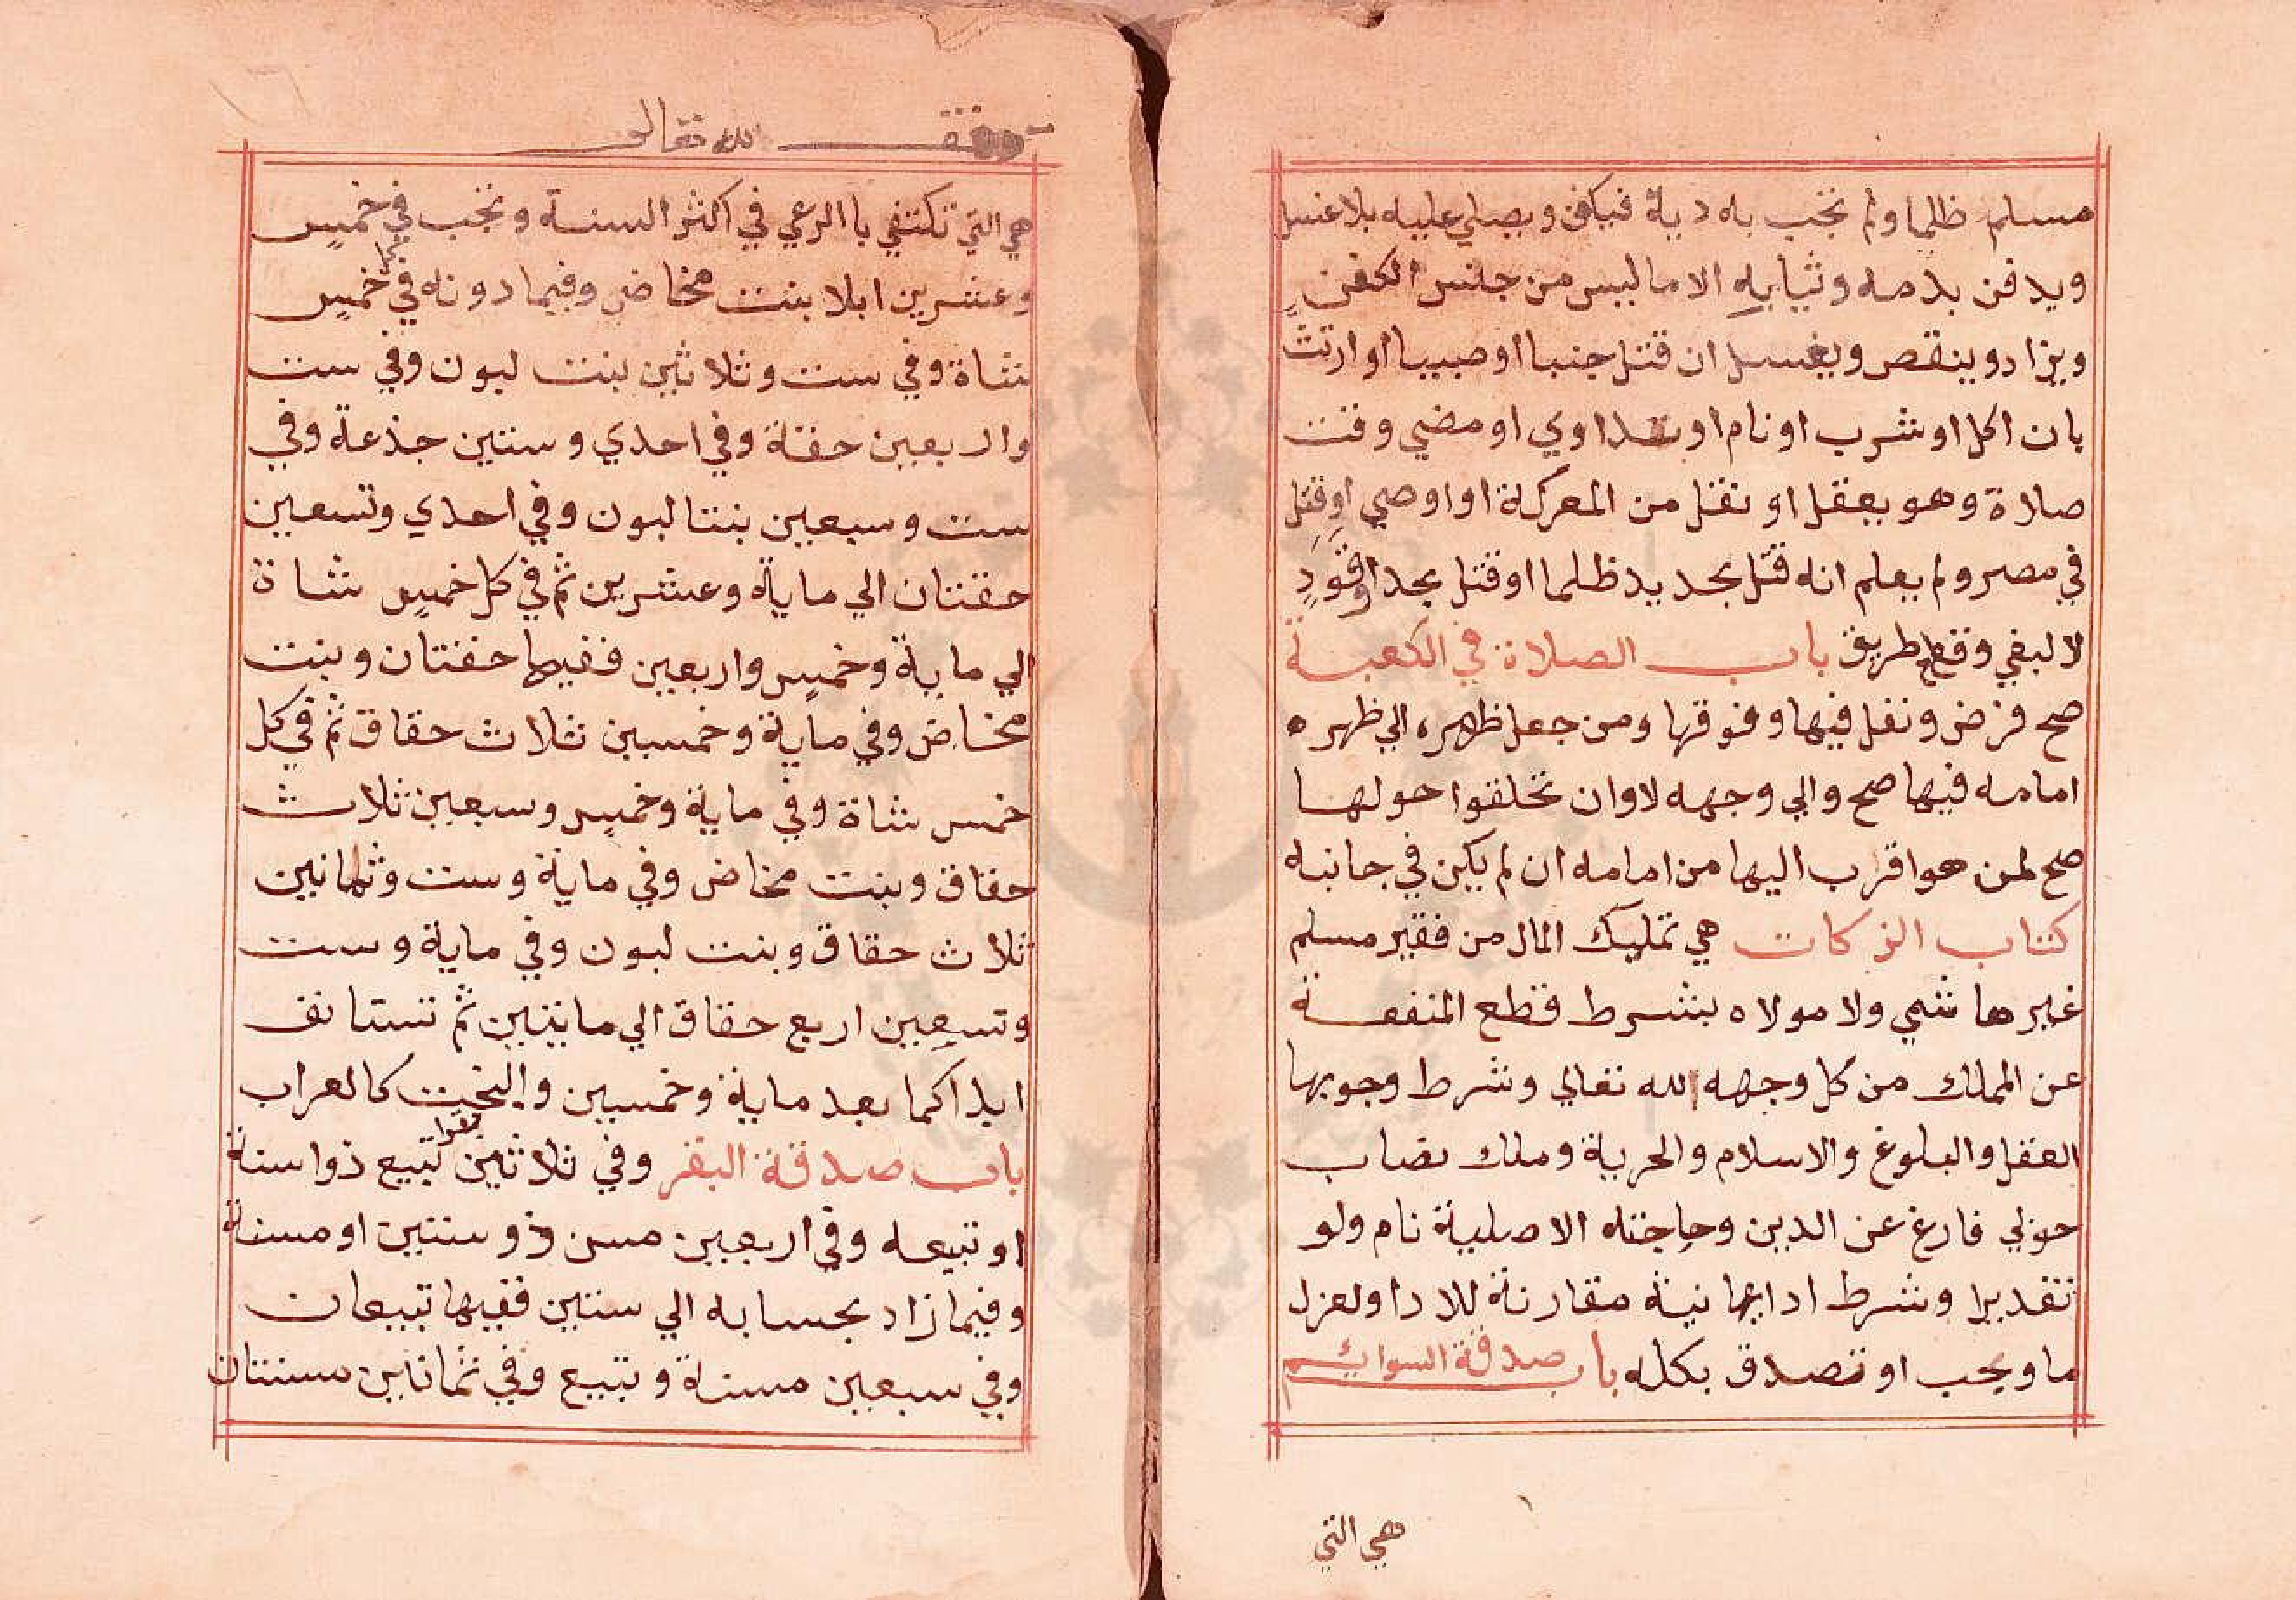 مسلم ظلما ولم تجب به دية فيكفن ويصلي عليه بلا غسل
ويدفن بدمه وثيابه الا ما ليس من جنس الكفن
ويزاد وينقص ويغسل ان قتل جنبا او صبيا او ارتث
بان اكل او شرب او نام او تداوي او مضي وقت
صلاة وهو يعقل او نقل من المعركة او اوصي او قتل
في مصر ولم يعلم انه قتل بحديد ظلما او قتل بحد او قود
لا لبغي وقطع طريق باب الصلاة في الكعبة
صح فرض ونفل فيها وفوقها ومن جعل ظهره الي ظهره
امامه فيها صح والي وجهه لا وان تحلقوا حولها
صح لمن هو اقرب اليها من امامه ان لم يكن في جانبه
كتاب الزكات هي تمليك المال من فقير مسلم
غير هاشمي ولا مولاه بشرط قطع المنفعة
عن المملك من كل وجهه لله تعالي وشرط وجوبها
العقل والبلوغ والاسلام والحرية وملك نصاب
حولي فارغ عن الدين وحاجته الاصلية نام ولو
تقديرا وشرط ادايها نية مقارنة للادا او لعزل
ما وجب او تصدق بكله باب صدقة السوايم
هي التي
وقف لله تعالى
هي التي تكتفي باالرعي في اكثر السنة وتجب في خمس
وعشرين ابلا بنت مخاض وفيما دونه في خمس
شاة وفي ست وثلاثين بنت لبون وفي ست
واربعين حقة وفي احدي وستين جذعة وفي
ست وسبعين بنتا لبون وفي احدي وتسعين
حقتان الي ماية وعشرين ثم في كل خمس شاة
الي ماية وخمس واربعين ففيها حقتان وبنت
مخاض وفي ماية وخمسين ثلاث حقاق ثم في كل
خمس شاة وفي ماية وخمس وسبعين ثلاث
حقاق وبنت مخاض وفي ماية وست وثمانين
ثلاث حقاق وبنت لبون وفي ماية وست
وتسعين اربع حقاق الي مايتين ثم تستانف
ابدا كما بعد ماية وخمسين والبخت كالعراب
باب صدقة البقر وفي ثلاثين بقرا تبيع ذوا سنة
او تبيعه وفي اربعين مسن ذو سنتين او مسنة
وفيما زاد بحسابه الي ستين ففيها تبيعان
وفي سبعين مسنة وتبيع وفي ثمانين مسنتان